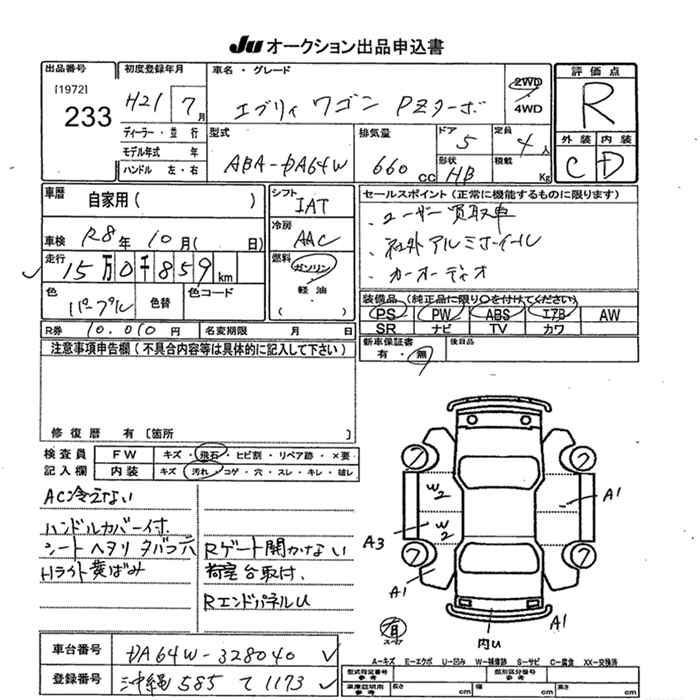 JU オークション出品申込書
出品番号
[1972]
233
初度登録年月
H21 7月
ディーラー・並行
モデル年式 年
ハンドル 左・右
車名・グレード
エブリィ ワゴン PZターボ
2WD
4WD
型式
ABA-DA64W
排気量
660 CC
ドア
5
形状
HB
定員
4人
積載
Kg
評価点
R
外装 内装
C D
車歴
自家用( )
車検 R8年10月( 日)
走行
15万0千859km
色
パープル
色替
色コード
R券 10,010円
名変期限 月 日
シフト
IAT
冷房
AAC
燃料
ガソリン
・
軽油
( )
セールスポイント(正常に機能するものに限ります)
・ユーザー買取車
・社外アルミホイール
・カーオーディオ
装備品(純正品に限り○を付けてください)
PS PW ABS エアB AW
SR ナビ TV カワ
新車保証書
有・無
後日品
注意事項申告欄(不具合内容等は具体的に記入して下さい)
修復歴 有 [箇所 ]
検査員
記入欄
FW キズ・飛石・ヒビ割・リペア跡・×要
内装 キズ・汚れ・コゲ・穴・スレ・キレ・破レ
AC冷えない
ハンドルカバー付
シートヘタリ タバコ穴
Hライト黄ばみ
Rゲート開かない
荷室台取付
RエンドパネルU
W2
W2
A1
A3
A1
A1
内U
有
A-キズ E-エクボ U-凹み W-補修跡 S-サビ C-腐食 XX-交換済
車台番号 DA64W-328040
登録番号 沖縄 585 て 1173
型式指定番号
参考
類別区分番号
参考
車庫証明用
参考
長さ cm 幅 cm 高さ cm